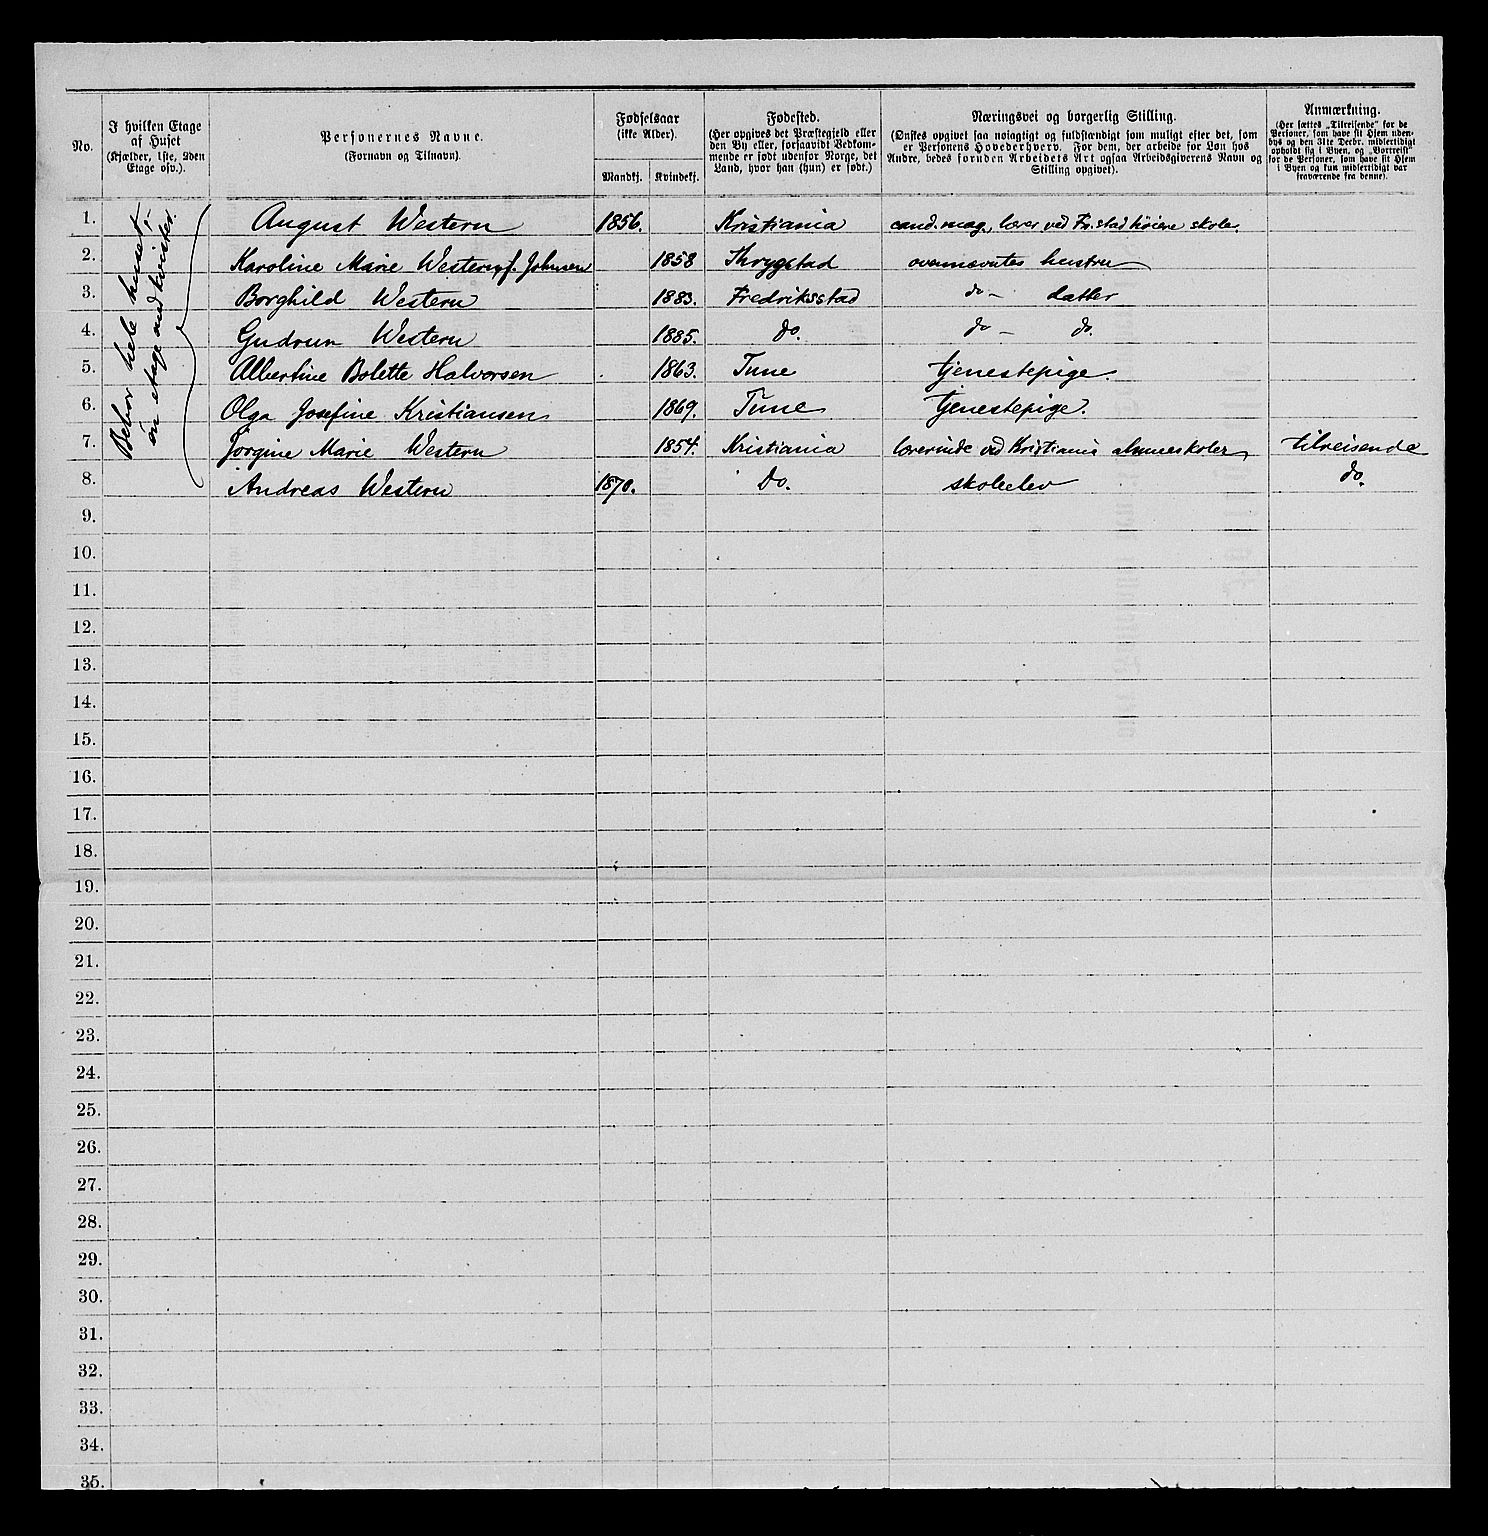 No.
I hvilken Etage
af Huset
(Kjælder, 1ste, 2den
Etage osv.).
Personernes Navne.
(Fornavn og Tilnavn).
Fødselsaar
(ikke Alder).
Mandkj. Kvindekj.
Fødested.
(Her opgives det Præstegjeld eller
den By eller, forsaavidt Vedkom-
mende er født udenfor Norge, det
Land, hvor han (hun) er født.)
Næringsvei og borgerlig Stilling.
(Ønskes opgivet saa nøiagtigt og fuldstændigt som muligt efter det, som
er Personens Hovederhverv. For dem, der arbeide for Løn hos
Andre, bedes foruden Arbeidets Art ogsaa Arbeidsgiverens Navn og
Stilling opgivet).
Anmærkning.
(Her sættes „Tilreisende“ for de
Personer, som have sit Hjem uden-
bys og den 31te Decbr. midlertidigt
opholdt sig i Byen, og „Bortreist“
for de Personer, som have sit Hjem
i Byen og kun midlertidigt var
fraværende fra denne).
Bebor hele huset –
én etage med kvister.
1. August Western 1856. Kristiania cand. mag., lærer ved Fr.stad høiere skole.
2. Karoline Marie Western f. Johnsen 1858 Thrygstad ovennævntes hustru
3. Borghild Western 1883. Fredriksstad do – datter
4. Gudrun Western 1885. do. do – do.
5. Albertine Bolette Halvorsen 1863. Tune tjenestepige.
6. Olga Josefine Kristiansen 1869. Tune tjenestepige.
7. Jørgine Marie Western 1854. Kristiania lærerinde ved Kristiania almueskoler tilreisende
8. Andreas Western 1870. Do. skoleelev do.
9.
10.
11.
12.
13.
14.
15.
16.
17.
18.
19.
20.
21.
22.
23.
24.
25.
26.
27.
28.
29.
30.
31.
32.
33.
34.
35.